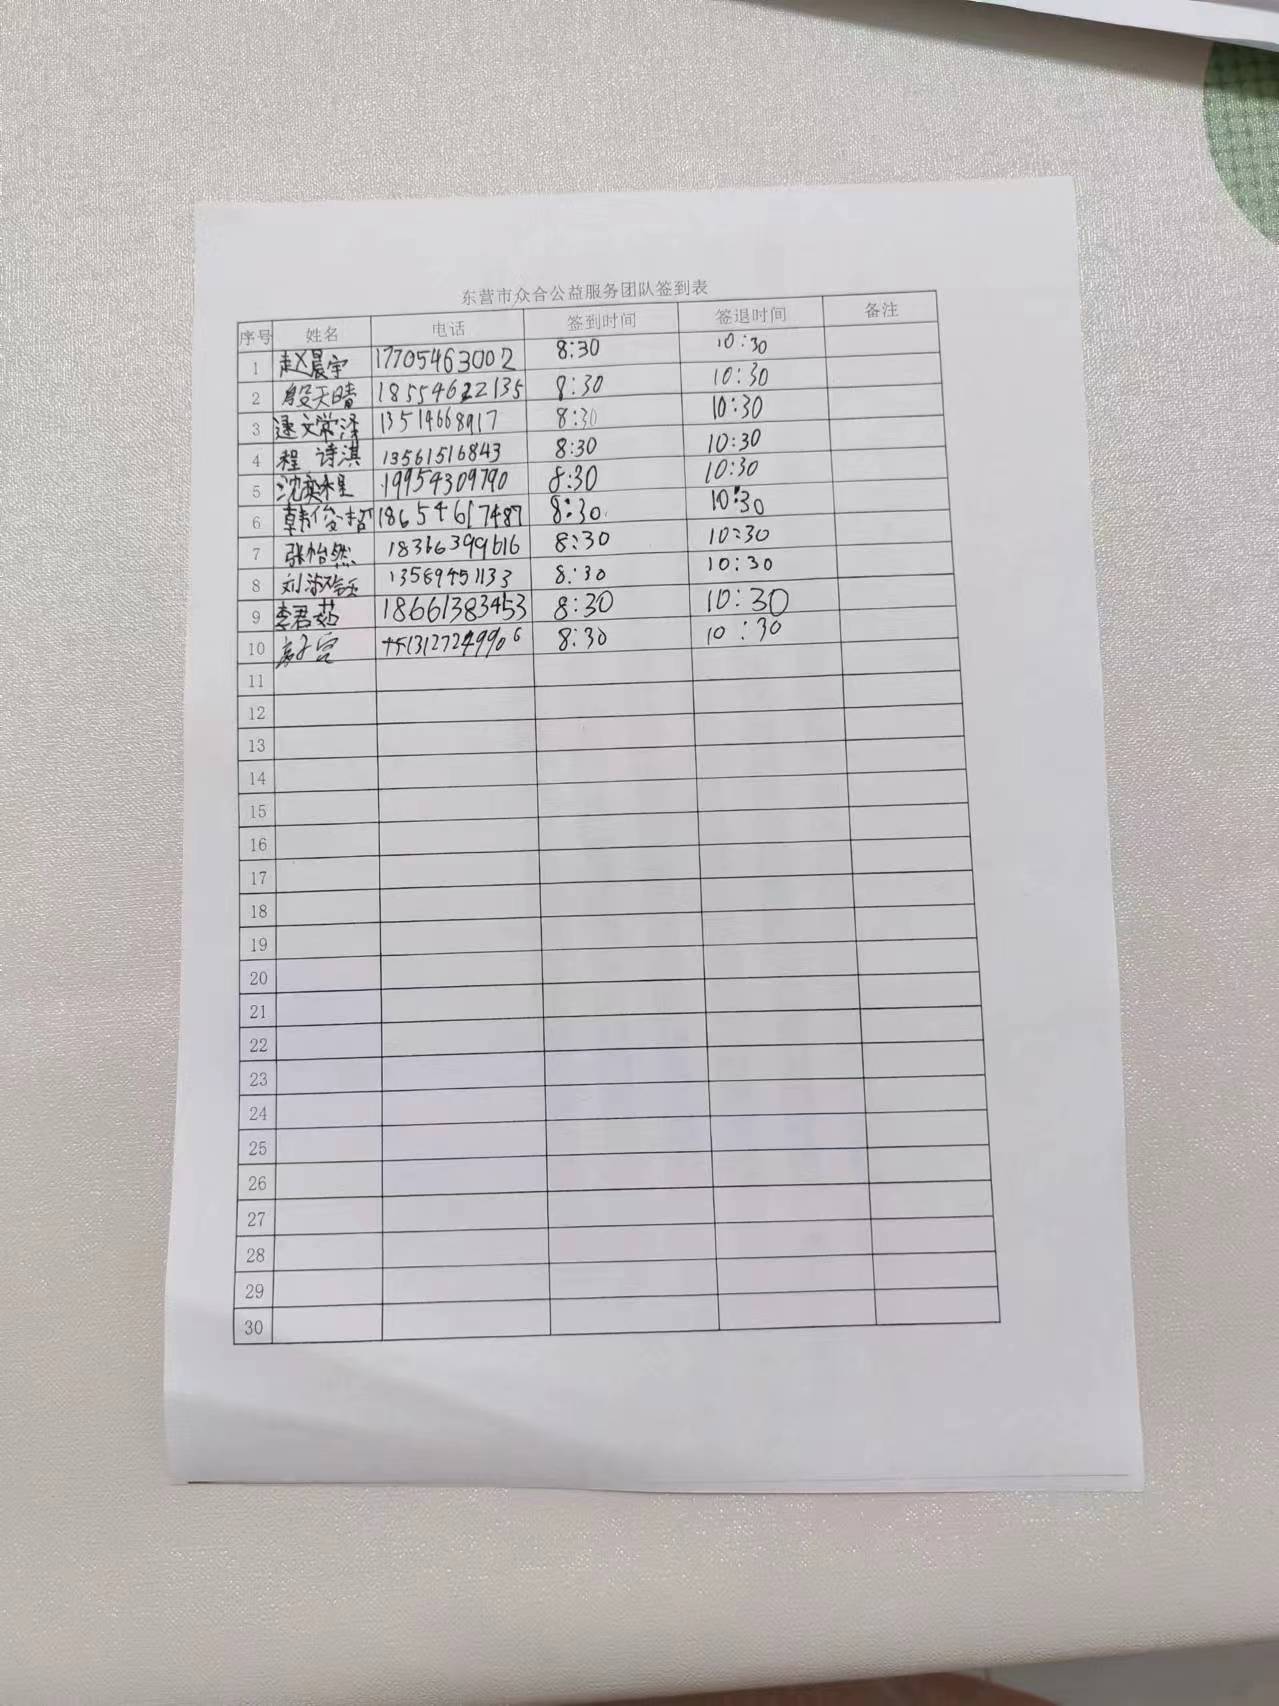 东营市众合公益服务团队签到表
序号 姓名 电话 签到时间 签退时间 备注
1 赵晨宇 17705463002 8:30 10:30
2 殷天晴 18554622135 8:30 10:30
3 逯文常泽 13514668917 8:30 10:30
4 程诗淇 13561516843 8:30 10:30
5 沈奕程 19954309790 8:30 10:30
6 韩俊哲 18654617487 8:30 10:30
7 张怡然 18366399616 8:30 10:30
8 刘 13589451133 8:30 10:30
9 李君茹 18661383453 8:30 10:30
10 8:30 10:30
11
12
13
14
15
16
17
18
19
20
21
22
23
24
25
26
27
28
29
30